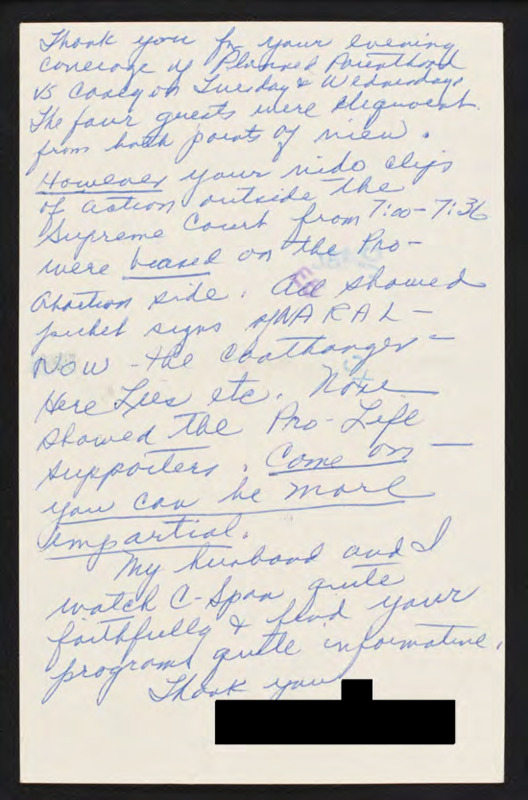 Thank you for your evening
coverage of Planned Parenthood
vs Casey on Tuesday & Wednesday.
The four guests were eloquent
from both points of view.
However your vido clips
of action outside the
Supreme Court from 7:00-7:36
were biased on the Pro-
abortion side. All showed
picket signs of NARAL-
NOW - the coathanger -
Here Lies etc. None
showed the Pro-Life
supporters. Come on —
you can be more
impartial.
My husband and I
watch C-Span quite
faithfully & find your
programs quite informative.
Thank you